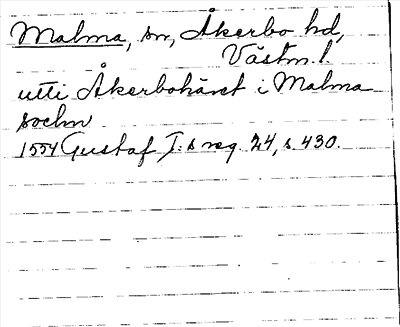 Malma, sn, Åkerbo hd,
Västm. l.
utti Åkerbohäret i Malma
sochn
1554 Gustaf I:s reg. 24, s. 430.